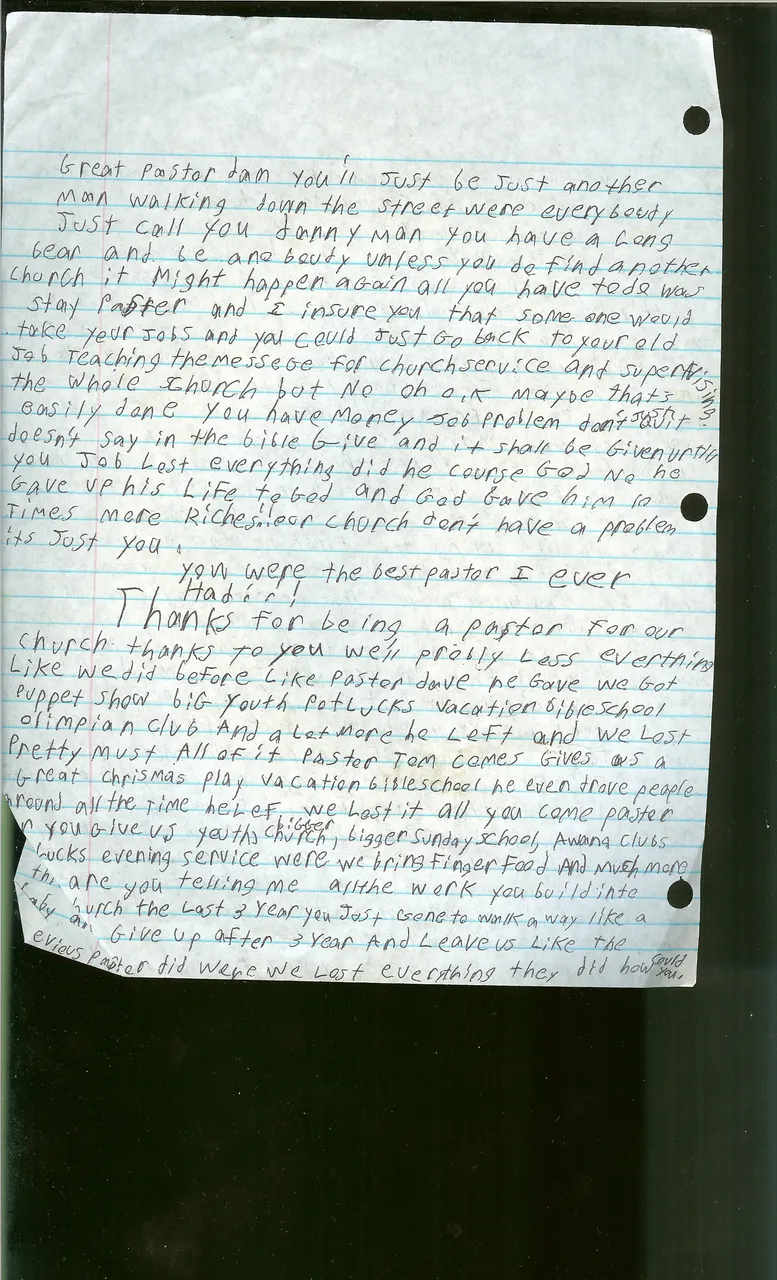 Great pastor dam you'll Just be Just another
man walking down the street were everyboudy
Just call you danny man you have a long
bear and. be ano boudy unless you do find another
church it Might happen again all you have todo was
stay Paster and I insure you that some one would
take your Jobs and you could Just Go back to your old
Job Teaching the messege for church service and supervising
the whole church but No oh o.k maybe that's
easily done you have Money Job problem don't Just Quit?
doesn't say in the bible Give and it shall be Given unto
you Job Lost everything did he course God No he
Gave up his Life to God and God Gave him 10
Times more Riches!!our church don't have a problem
its Just you.
you were the best pastor I ever
Had!
Thanks for being a pastor for our
church thanks to you we'll probly Loss everthing
Like we did before Like Pastor dave he Gave we Got
puppet show biG youth PotLucks vacation bibleschool
olimpian Club And a Lot more he Left and we Lost
Pretty must All of it Paster Tom comes Gives us a
Great chrismas play vacation bibleschool he even drove people
around all the Time he LeF we Lost it all you come paster
you Give us youth, bigger church, bigger Sunday school, Awana Clubs
Lucks evening service were we bring Finger Food And Much more
are you telling me all the work you build into
hurch the Last 3 Year you Just Gone to walk away Like a
aby Give up after 3 Year And Leave us Like the
evious Paster did were we Lost everything they did how could you.